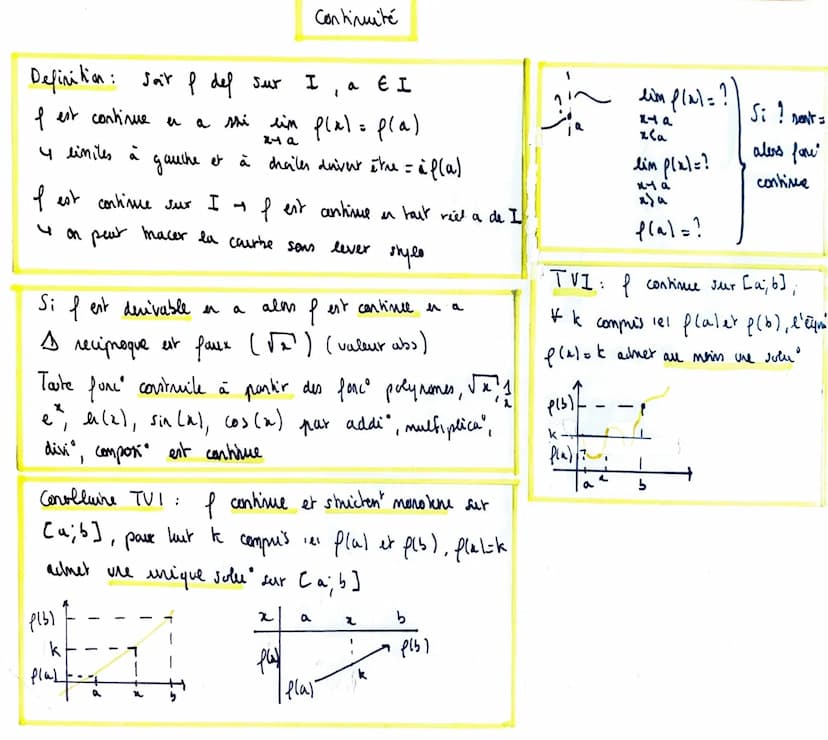 Continuité
Definition : Soit f def sur I, a ∈ I
f est continue en a ssi lim f(x) = f(a)
x→a
↳ limites à gauche et à droites doivent être = à f(a)
f est continue sur I → f est continue en tout réel a de I
↳ on peut tracer la courbe sans lever stylo
?
a
lim f(x) = ?
x→a
x<a
lim f(x) = ?
x→a
x>a
f(a) = ?
Si ? sont =
alors fonc°
continue
Si f est derivable en a alors f est continue en a
⚠ reciproque est faux (√x) (valeur abs)
Toute fonc° construite à partir des fonc° polynomes, √x, 1/x
e^x, ln(x), sin(x), cos(x) par addi°, multiplica°,
divi°, compos° est continue
TVI : f continue sur [a;b],
∀ k compris f(a) et f(b), l'équa°
f(x)=k admet au moins une solu°
f(b)
k
f(a)
a
b
Corollaire TVI : f continue et strictent monotone sur
[a;b], pour tout k compris f(a) et f(b), f(x)=k
admet une unique solu° sur [a;b]
f(b)
k
f(a)
a x b
x a x b
f(x)
f(b)
k
f(a)